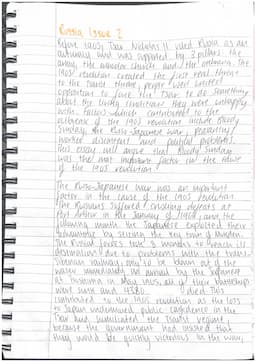 Russia Issue 2
Before 1905, Tsar Nicholas II ruled Russia as an
autocracy and was supported by 3 pillars: the
army, the
1905 revolution created the first real threat
to the Tsarist regime, people were united
opposition to force the Tsar to do something
about the living conditions they were unhappy
with. Factors which contributed to the
outbreak of the 1905 revolution include Bloody
Sunday, the Russo-Japanese war, peasantry/
worker discontent and political problems.
This essay will argue that Bloody Sunday
was the most important factor in the cause
of the 1905 revolution.
The Russo-Japanese war was an important
factor in the cause of the 1905 revolution.
The Russians suffered crushing defeats at
Port Arthur in the January of 1905, and the
following month the Japanese exploited their
advantage by seizing the key town of Mukden.
The Russian forces took 8 months to reach its
destination due to problems with the trans-
Siberian railway, only to be blown out of the
water immediately on arrival by the Japanese
at Tsushima in May 1905. 25 of their battleships
were sunk and 4380 died. This
contributed to the 1905 revolution as the loss
to Japan undermined public confidence in the
Tsar and humiliated the Tsarist regime
because the government had insisted that
they would be quickly victorious in the war,